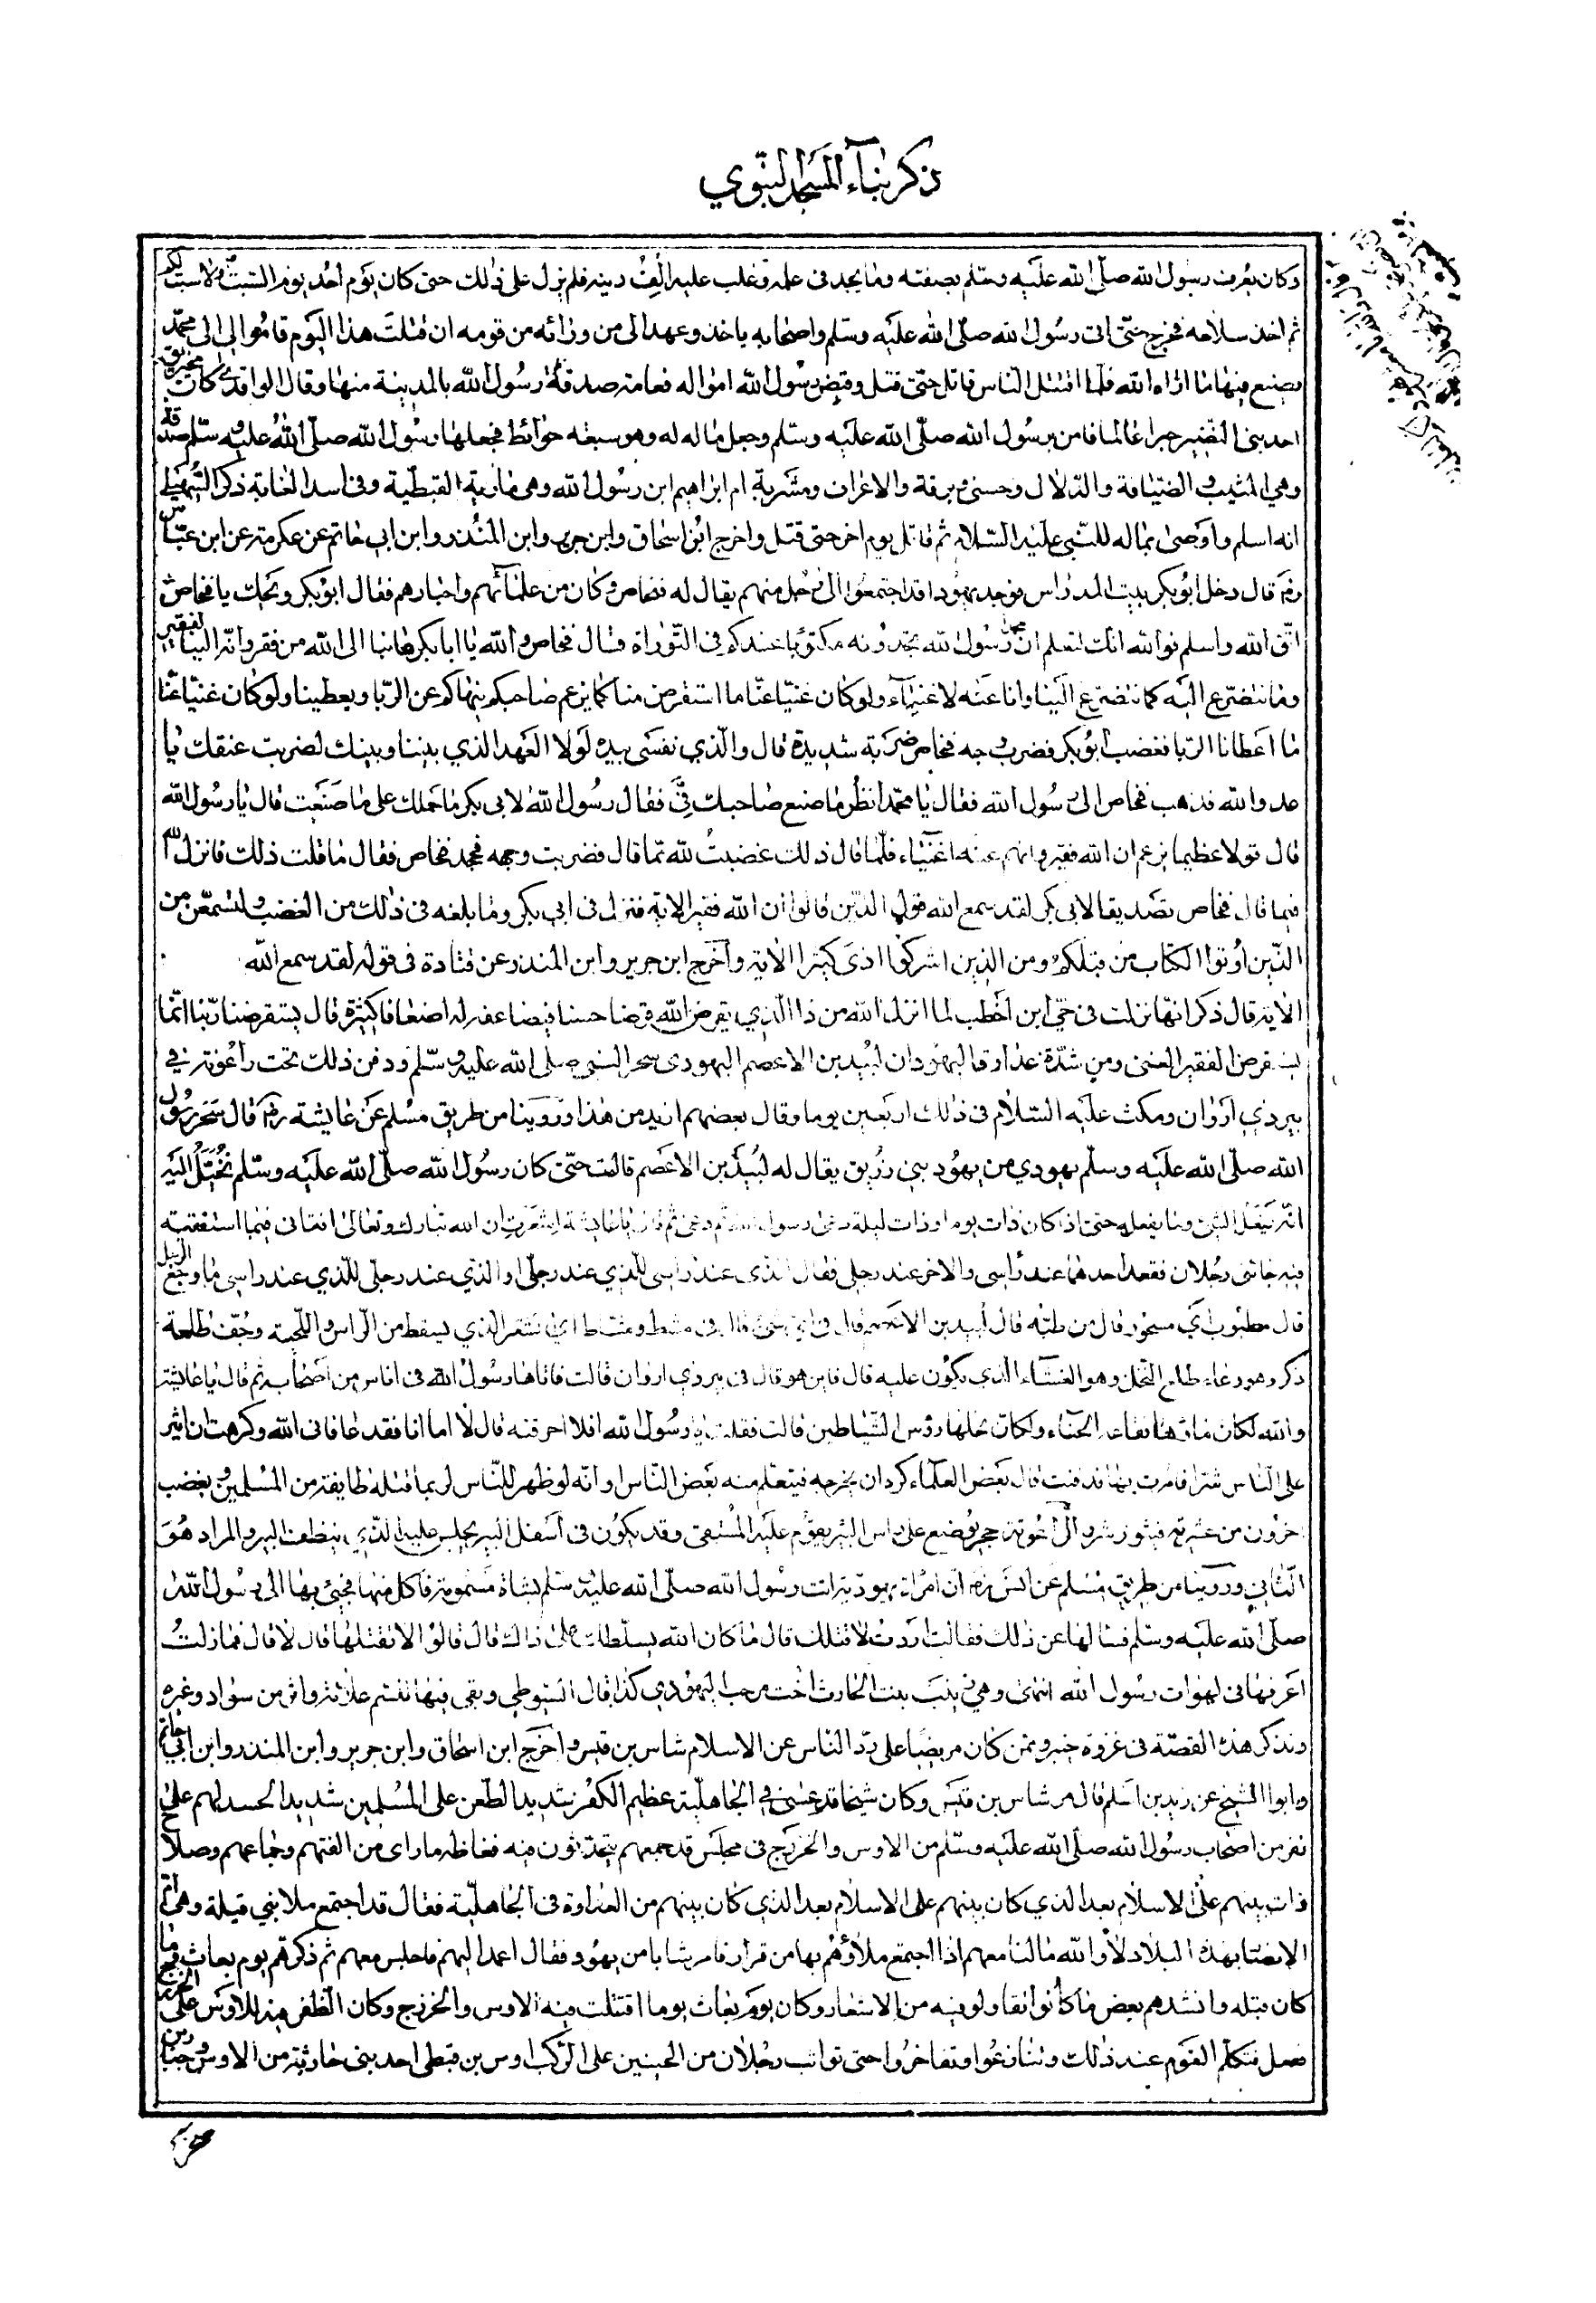 ذكر بناء المسجد النبوي
وكان يعرف رسول الله صلى الله عليه وسلم بصفته وما يجد فى علمه وغلب عليه الف دينه فلم يزل على ذلك حتى كان يوم احد يوم السبت
ثم اخذ سلاحه فخرج حتى اتى رسول الله صلى الله عليه وسلم واصحابه باحد وعهد الى من ورائه من قومه ان قتلت هذا اليوم فاموالى الى محمد
يصنع فيها ما اراه الله فلما اقتتل الناس قاتل حتى قتل وقبض رسول الله امواله فعامة صدقة رسول الله بالمدينة منها وقال الواقدي كان مخيريق
احد بنى النضير حبرا عالما فامن برسول الله صلى الله عليه وسلم وجعل ماله له وهو سبعة حوائط فجعلها رسول الله صلى الله عليه وسلم صدقة
وهي المثيب و الضيافة والدلال وحسنى وبرقة والاعراف ومشربة ام ابراهيم ابن رسول الله وهى مارية القبطية وفى اسد الغابة ذكر السهيلي
انه اسلم واوصى بماله للنبي عليه السلام ثم قاتل يوم احد حتى قتل واخرج ابن اسحاق وابن جرير وابن المنذر وابن ابي حاتم عن عكرمة عن ابن عباس
رض قال دخل ابو بكر بيت المدراس فوجد يهودا قد اجتمعوا الى رجل منهم يقال له فنحاص وكان من علمائهم واحبارهم فقال ابو بكر ويحك يا فنحاص
اتق الله واسلم فوالله انك لتعلم ان محمدا رسول الله تجدونه مكتوبا عندكم فى التوراة فقال فنحاص والله يا ابا بكر ما بنا الى الله من فقر وانه الينا لفقير
وما نتضرع اليه كما يتضرع الينا وانا عنه لاغنياء ولو كان غنيا عنا ما استقرض منا كما يزعم صاحبكم ينهاكم عن الربا ويعطينا ولو كان غنيا عنا
ما اعطانا الربا فغضب ابو بكر فضرب وجه فنحاص ضربة شديدة قال والذي نفسى بيده لولا العهد الذي بيننا وبينك لضربت عنقك يا
عدو الله فذهب فنحاص الى رسول الله فقال يا محمد انظر ما صنع صاحبك فى فقال رسول الله لابى بكر ما حملك على ما صنعت قال يا رسول الله
قال قولا عظيما يزعم ان الله فقير وانهم عنه اغنياء فلما قال ذلك غضبت لله مما قال فضربت وجهه فجحد فنحاص فقال ما قلت ذلك فانزل الله
فيما قال فنحاص تصديقا لابى بكر لقد سمع الله قول الذين قالوا ان الله فقير الاية فنزل فى ابي بكر وما بلغه فى ذلك من الغضب ولتسمعن من
الذين اوتوا الكتاب من قبلكم ومن الذين اشركوا اذى كثيرا الاية واخرج ابن جرير وابن المنذر عن قتادة فى قوله لقد سمع الله
الاية قال ذكر انها نزلت فى حيي ابن اخطب لما انزل الله من ذا الذي يقرض الله قرضا حسنا فيضاعفه له اضعافا كثيرة قال يستقرضنا ربنا انما
يستقرض الفقير الغنى ومن شدة عداوة اليهود ان لبيد بن الاعصم اليهودى سحر النبي صلى الله عليه وسلم ودفن ذلك تحت راعوثة في
بير ذي اروان ومكث عليه السلام فى ذلك اربعين يوما وقال بعضهم ازيد من هذا وروينا من طريق مسلم عن عايشة رض قال سحر رسول
الله صلى الله عليه وسلم يهودي من يهود بنى زريق يقال له لبيد بن الاعصم قالت حتى كان رسول الله صلى الله عليه وسلم يخيل اليه
انه يفعل الشئ وما يفعله حتى اذا كان ذات يوم او ذات ليلة دعى رسول الله ثم دعى ثم قال يا عايشة اشعرت ان الله تبارك وتعالى افتانى فيما استفتيته
فيه جائنى رجلان فقعد احدهما عند راسى والاخر عند رجلى فقال الذى عند راسى للذي عند رجلى او الذي عند رجلى للذي عند راسى ما وجع الرجل
قال مطبوب اي مسحور قال من طبه قال لبيد بن الاعصم قال فى اي شئ قال فى مشط ومشاطة اي الشعر الذي يسقط من الراس واللحية وجف طلعة
ذكر وهو وعاء طلع النخل وهو الغشاء الذي يكون عليه قال فاين هو قال فى بير ذي اروان قالت فاتاها رسول الله فى اناس من اصحابه ثم قال يا عايشة
والله لكان ماءها نقاعة الحناء ولكان نخلها رؤس الشياطين قالت فقلت يا رسول الله افلا احرقته قال لا اما انا فقد عافانى الله وكرهت ان اثير
على الناس شرا فامرت بها فدفنت قال بعض العلماء كره ان يخرجه فيتعلم منه بعض الناس او انه لو ظهر للناس لربما قتله طايفة من المسلمين ويغضب
اخرون من عشيرته فيثور شر والراعوثة حجر يوضع على راس البئر يقوم عليه المستقى وقد يكون فى اسفل البير يجلس عليه الذي ينظف البير والمراد هو
الثاني وروينا من طريق مسلم عن انس رض ان امراة يهودية اتت رسول الله صلى الله عليه وسلم بشاة مسمومة فاكل منها فجئى بها الى رسول الله
صلى الله عليه وسلم فسالها عن ذلك فقالت اردت لاقتلك قال ما كان الله يسلطك على ذلك قال قالوا الا نقتلها قال لا قال فما زلت
اعرفها فى لهوات رسول الله انتهى وهي زينب بنت الحارث اخت مرحب اليهودي كذا قال السيوطي وبقي
ونذكر هذه القصة فى غزوة خيبر وممن كان مريضا على رد الناس عن الاسلام شاس بن قيس واخرج ابن اسحاق وابن جرير وابن المنذر وابن ابي حاتم
وابوا الشيخ عن زيد بن اسلم قال مر شاس بن قيس وكان شيخا قد عسى في الجاهلية عظيم الكفر شديد الطعن على المسلمين شديد الحسد لهم على
نفر من اصحاب رسول الله صلى الله عليه وسلم من الاوس والخزرج فى مجلس قد جمعهم يتحدثون فيه فغاظه ما راى من الفتهم وجماعهم وصلاح
ذات بينهم على الاسلام بعد الذي كان بينهم على الاسلام بعد الذي كان بينهم من العداوة فى الجاهلية فقال قد اجتمع ملا بني قيلة وهى ام
الانصار بهذه البلاد لا والله ما لنا معهم اذا اجتمع ملاؤهم بها من قرار فامر شابا من يهود فقال اعمد اليهم فاجلس معهم ثم ذكرهم يوم بعاث وما
كان قبله وانشدهم بعض ما كانوا تقاولو فيه من الاشعار وكان يوم بعاث يوما اقتتلت فيه الاوس والخزرج وكان الظفر فيه للاوس على الخزرج
ففعل فتكلم القوم عند ذلك وتنازعوا وتفاخروا حتى تواثب رجلان من الحيين على الركب اوس بن قيظى احد بنى حارثة من الاوس وجبار بن